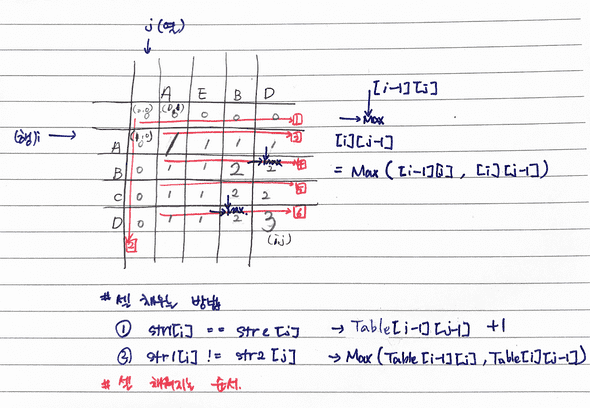 j (열)
A E B D
(0,0) (0,1)
0 0 0 0 0 1
(행)i (1,0) 3
A / 1 1 1
Max
B 0 1 1 2 2
C 0 1 1 2 2 5
Max.
D 0 1 1 2 3 6
2 (i,j)
[i-1][j]
Max
[i][j-1]
= Max ( [i-1][j] , [i][j-1])
# 셀 채우는 방법
① str1[i] == str2[j] → Table[i-1][j-1] +1
② str1[i] != str2 [j] → Max(Table[i-1][j] , Table[i][j-1])
# 셀 채워지는 순서.